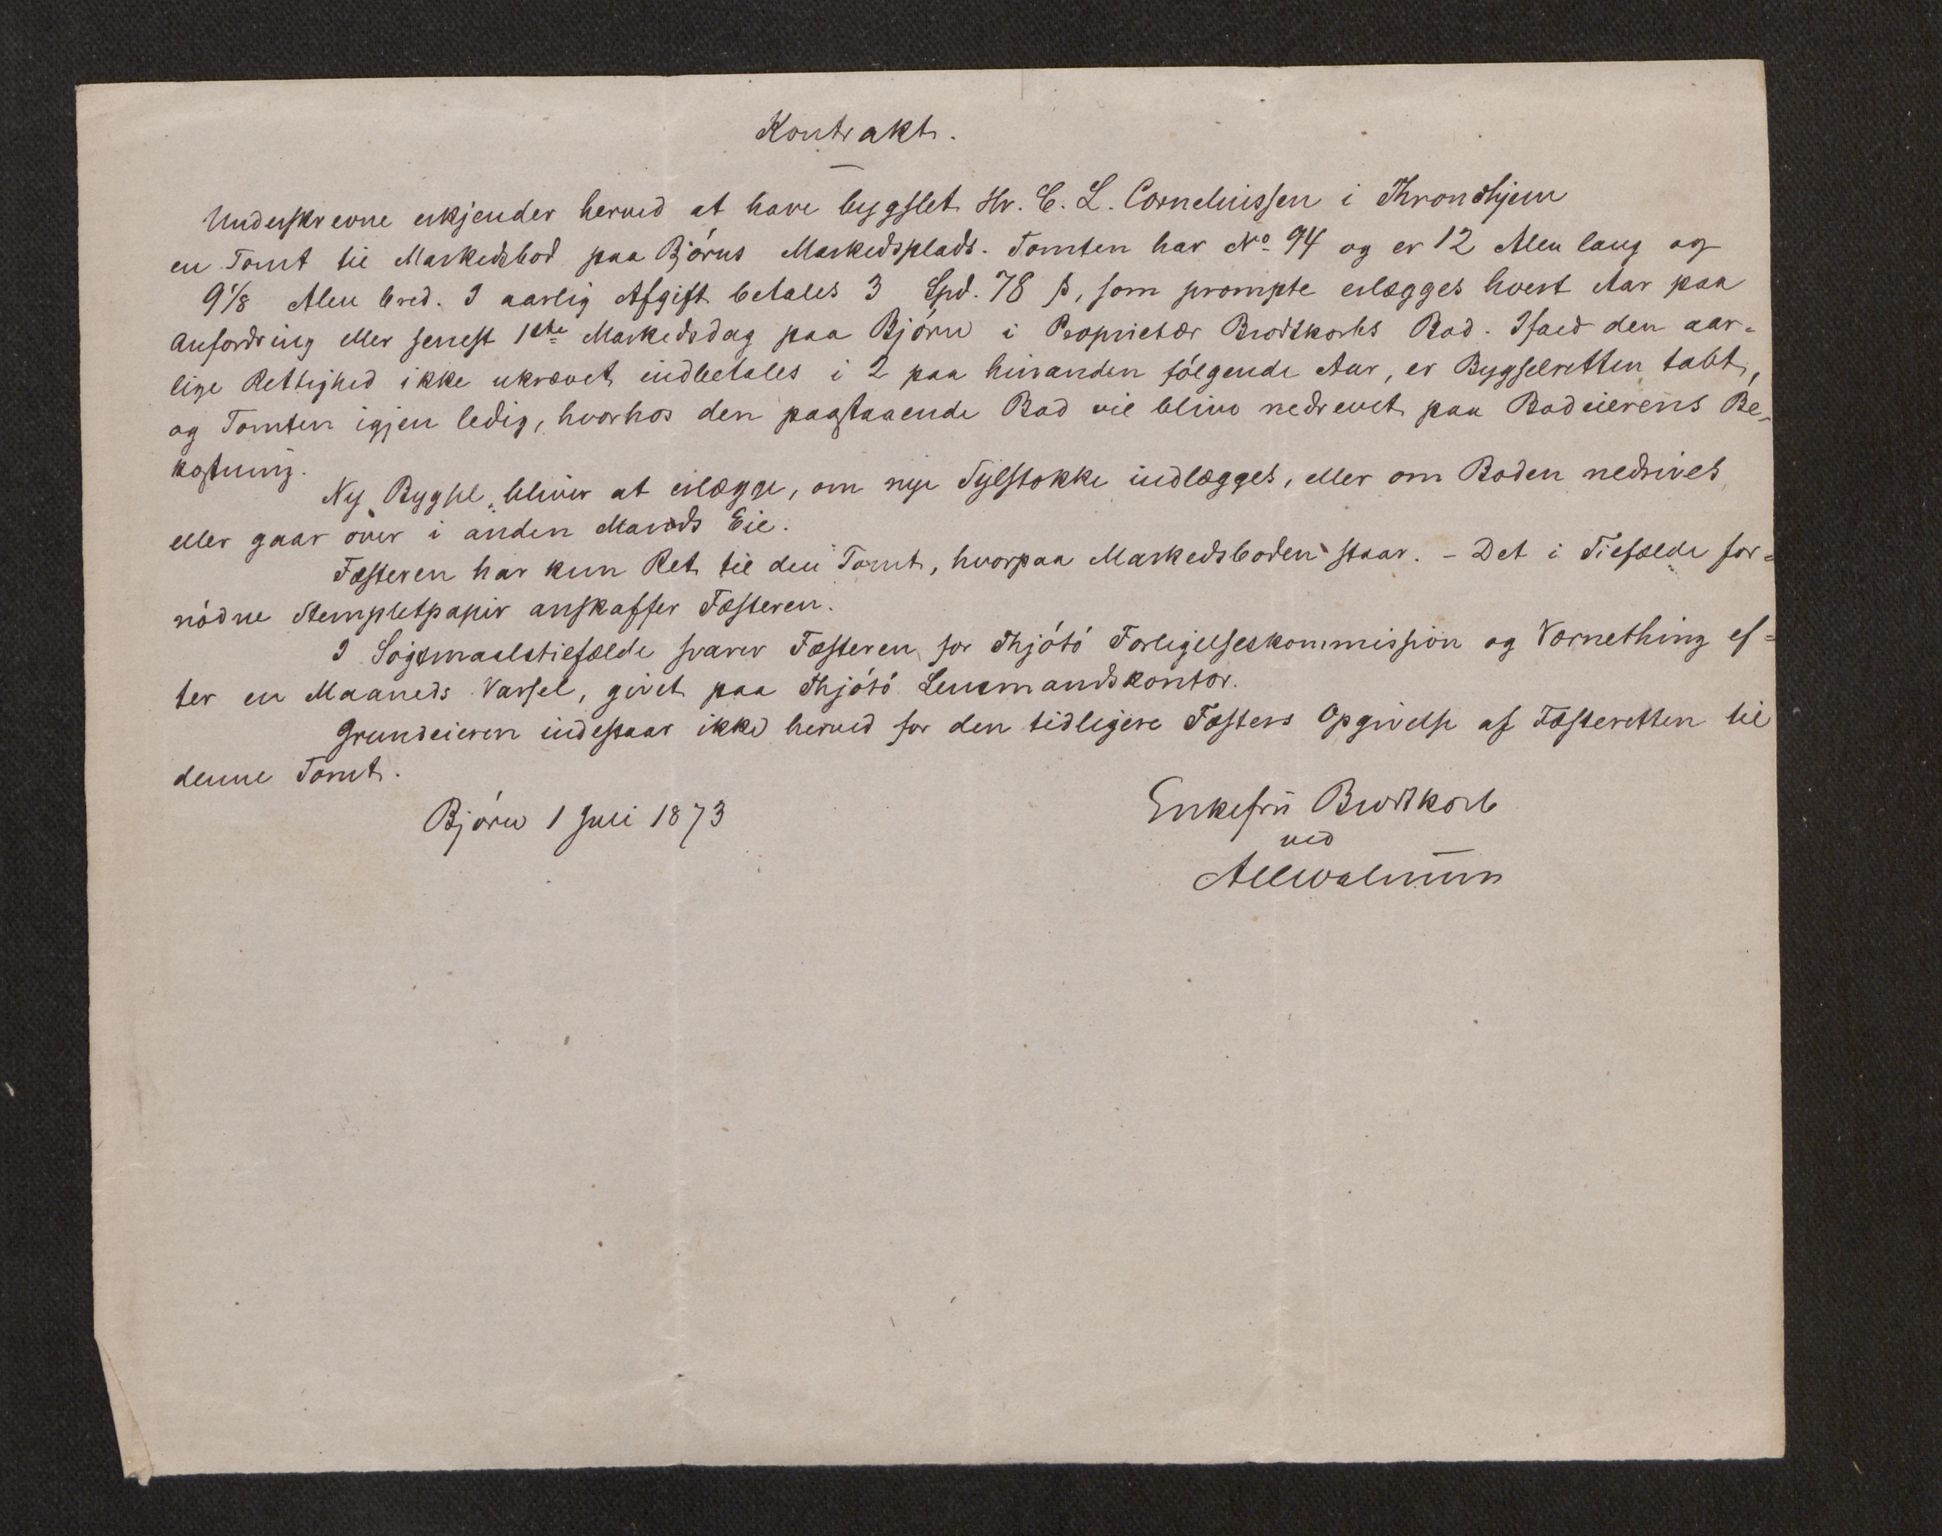 Kontrakt.
Underskrevne erkjender herved at have bygslet Hr. C. L. Corneliussen i Throndhjem
en Tomt til Markedsbod paa Bjørns Markedsplads. Tomten har No 94 og er 12 Alen lang og
9 1/8 Alen bred. I aarlig Afgift betales 3 Spd. 78 ß, som prompte erlægges hvert Aar paa
Anfordring eller senest 1ste Markedsdag paa Bjørn i Proprietær Brodtkorbs Bod. Ifald den aar-
lige Rettighed ikke ukrævet indbetales i 2 paa hinanden følgende Aar, er Bygselretten tabt,
og Tomten igjen ledig, hvorhos den paastaaende Bod vil blive nedrevet paa Bodeierens Be-
kostning.
Ny Bygsel bliver at erlægge, om nye Sylstokke indlægges, eller om Boden nedrives
eller gaar over i anden Mands Eie.
Fæsteren har kun Ret til den Tomt, hvorpaa Markedsboden staar. - Det i Tilfælde for=
nødne Stempletpapir anskaffer Fæsteren.
I Søgsmaalstilfælde svarer Fæsteren for Thjøtø Forligelseskommission og Værnething ef=
ter en Maaneds Varsel, givet paa Thjøtø Lensmandskontor.
Grundeieren indestaar ikke herved for den tidligere Fæsters Opgivelse af Fæsteretten til
denne Tomt.
Bjørn 1 Juli 1873
Enkefru Brodtkorb
ved